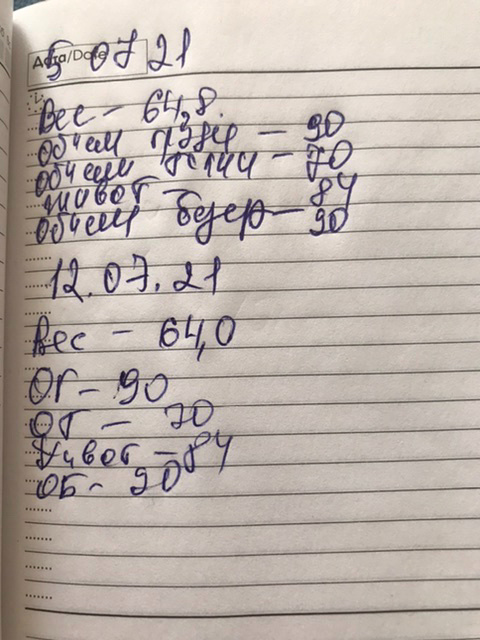 Дата/Date
5 07 21
Вес – 64,8.
Объем груди – 90
Объем талии – 70
Живот – 84
Объем бедер – 90
12.07.21
Вес – 64,0
ОГ – 90
ОТ – 70
Живот – 84
ОБ – 90